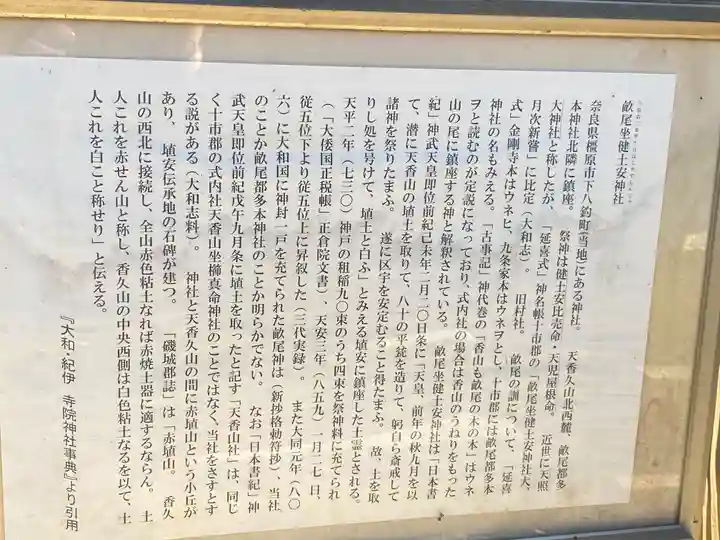 畝尾坐健土安神社
奈良県橿原市下八釣町(当地)にある神社。　天香久山北西麓、畝尾都多
本神社北隣に鎮座。　祭神は健土安比売命・天児屋根命。　近世に天照
大神社と称したが、「延喜式」神名帳十市郡の「畝尾坐健土安神社大、
月次新嘗」に比定（大和志）。　旧村社。　畝尾の訓について、「延喜
式」金剛寺本はウネヒ、九条家本はウネヲとし、十市郡には畝尾都多本
神社の名もみえる。「古事記」神代巻の「香山も畝尾の木の本」はウネ
ヲと読むのが定説になっており、式内社の場合は香山のうねりをもった
山の尾に鎮座する神と解釈されている。　畝尾坐健土安神社は「日本書
紀」神武天皇即位前紀己未年二月二〇日条に「天皇、前年の秋九月を以
て、潜に天香山の埴土を取りて、八十の平瓮を造りて、躬自ら斎戒して
諸神を祭りたまふ。　遂に区宇を安定むること得たまふ。　故、土を取
りし処を号けて、埴土と白ふ」とみえる埴安に鎮座した土霊とされる。
天平二年（七三〇）神戸の租稲九〇束のうち四束を祭神料に充てられ
（「大倭国正税帳」正倉院文書）、天安三年（八五九）一月二七日、
従五位下より従五位上に昇叙した（三代実録）。　また大同元年（八〇
六）に大和国に神封一戸を充てられた畝尾神は（新抄格勅符抄）、当社
のことか畝尾都多本神社のことか明らかでない。　なお「日本書紀」神
武天皇即位前紀戊午九月条に埴土を取ったと記す「天香山社」は、同じ
く十市郡の式内社天香山坐櫛真命神社のことではなく、当社をさすとす
る説がある（大和志料）。　神社と天香久山の間に赤埴山という小丘が
あり、埴安伝承地の石碑が建つ。　「磯城郡誌」は「赤埴山。　香久
山の西北に接続し、全山赤色粘土なれば赤焼土器に適するならん。　土
人これを赤せん山と称し、香久山の中央西側は白色粘土なるを以て、土
人これを白こと称せり」と伝える。
『大和・紀伊　寺院神社事典』より引用